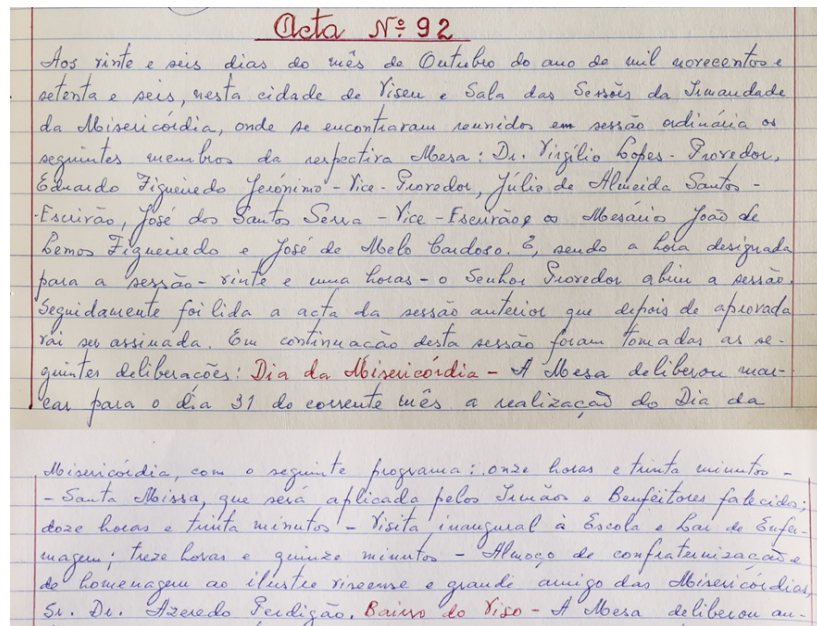 Acta Nº 92
Aos vinte e seis dias do mês de Outubro do ano de mil novecentos e
setenta e seis, nesta cidade de Viseu e Sala das Sessões da Irmandade
da Misericórdia, onde se encontraram reunidos em sessão ordinária os
seguintes membros da respectiva Mesa: Dr. Virgílio Lopes - Provedor,
Eduardo Figueiredo Jerónimo - Vice-Provedor, Júlio de Almeida Santos -
- Escrivão, José dos Santos Serra - Vice-Escrivão, e os Mesário João de
Lemos Figueiredo e José de Melo Cardoso. E, sendo a hora designada
para a sessão - vinte e uma horas - o Senhor Provedor abriu a sessão.
Seguidamente foi lida a acta da sessão anterior que depois de aprovada
vai ser assinada. Em continuação desta sessão foram tomadas as se-
guintes deliberações: Dia da Misericórdia - A Mesa deliberou mar-
car para o dia 31 do corrente mês a realização do Dia da
Misericórdia, com o seguinte programa: onze horas e trinta minutos -
- Santa Missa, que será aplicada pelos Irmãos e Benfeitores falecidos;
doze horas e trinta minutos - Visita inaugural à Escola e Lar de Enfer-
magem; treze horas e quinze minutos - Almoço de confraternização e
de homenagem ao ilustre viseense e grande amigo das Misericórdias,
Sr. Dr. Azeredo Perdigão. Bairro do Viso - A Mesa deliberou au-